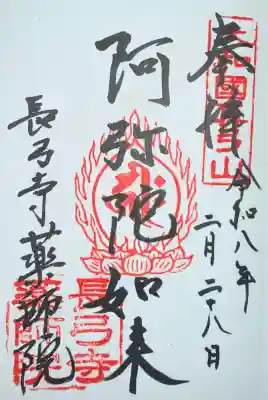 奉拝
令和八年
二月二十八日
阿弥陀如来
長弓寺薬師院
長弓寺